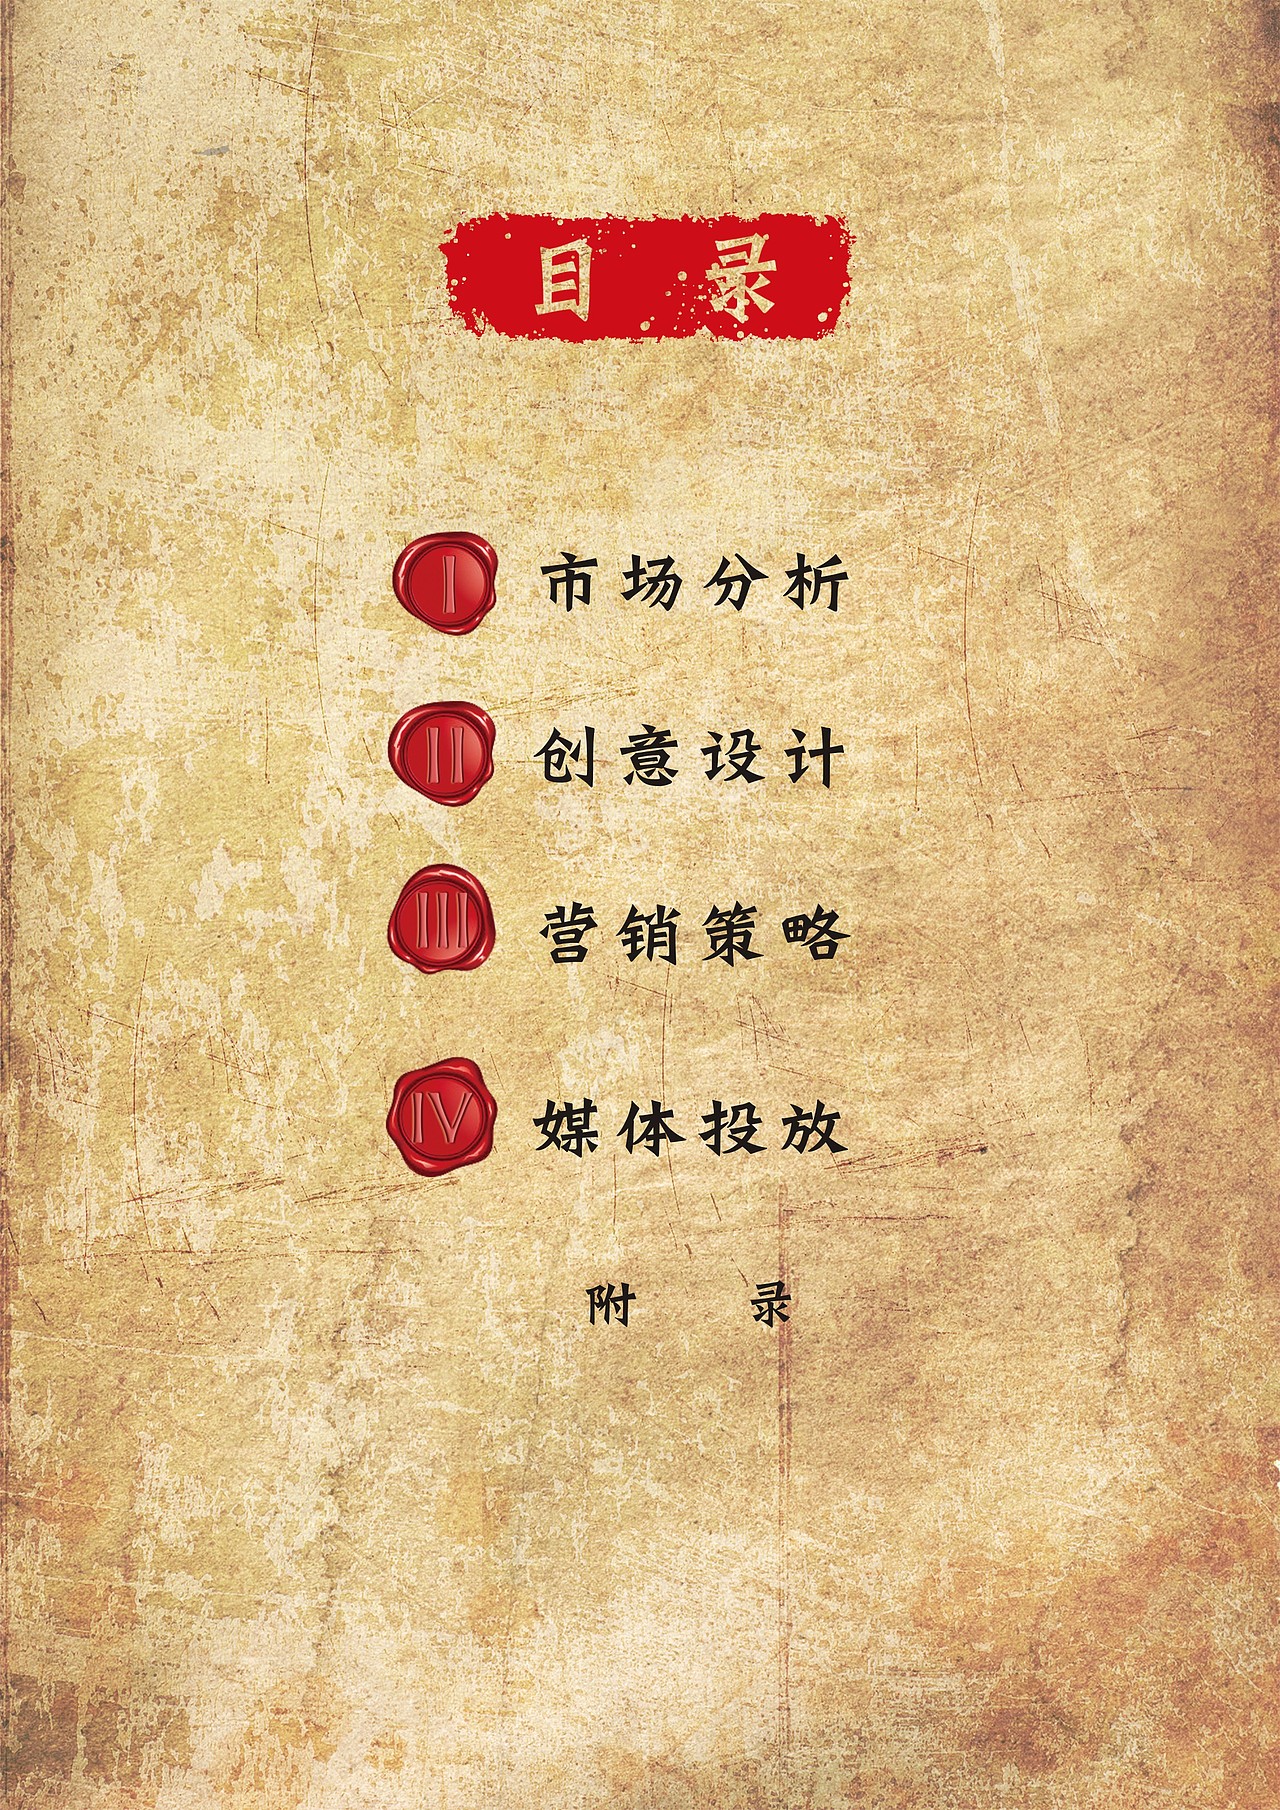 目 录
I 市场分析
II 创意设计
III 营销策略
IV 媒体投放
附 录